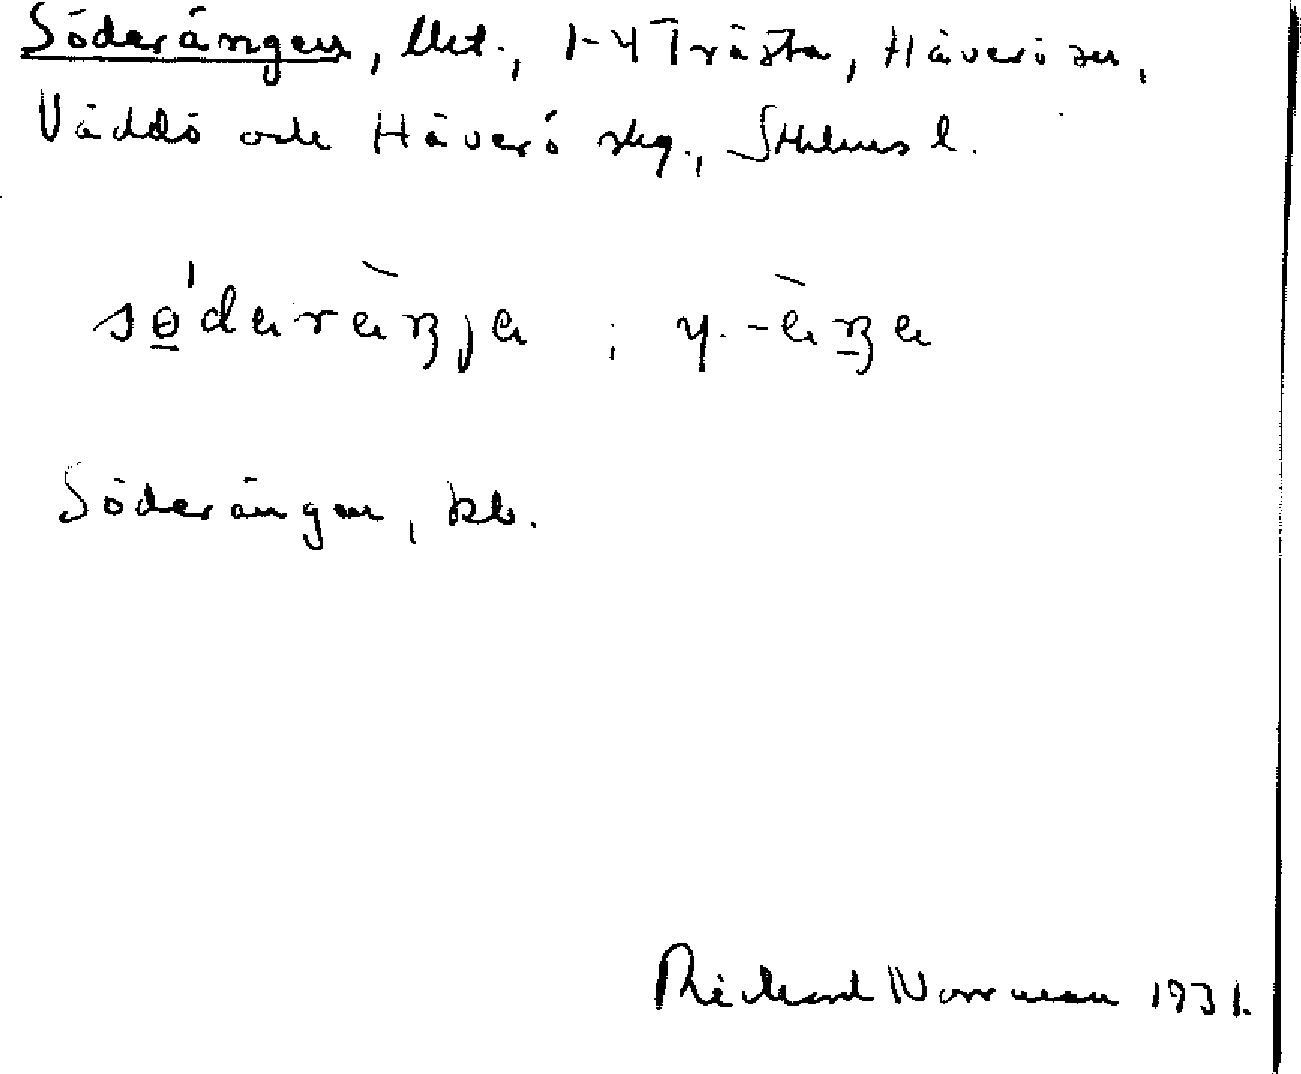 Söderängen, lht., 1-4 Trästa, Häverö sn,
Väddö och Häverö skg., Sthlms l.
Söderängen, kb.
Richard Norrman 1931.